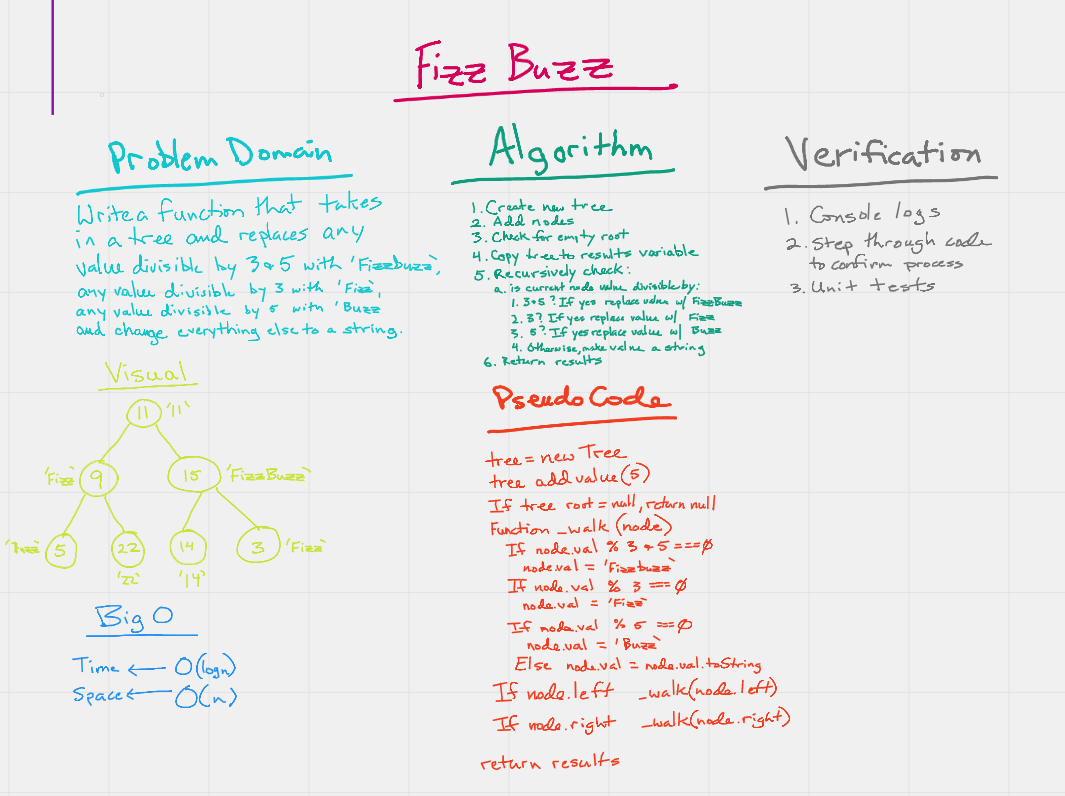 Fizz Buzz
Problem Domain
Write a function that takes
in a tree and replaces any
value divisible by 3 & 5 with 'Fizzbuzz',
any value divisible by 3 with 'Fizz',
any value divisible by 5 with 'Buzz
and change everything else to a string.
Visual
11 '11'
'Fizz' 9 15 'FizzBuzz'
5 22 14 3 'Fizz'
'22' '14'
Big O
Time ← O(logn)
Space ← O(n)
Algorithm
1. Create new tree
2. Add nodes
3. Check for empty root
4. Copy tree to results variable
5. Recursively check:
a. is current node value divisible by:
1. 3 & 5? If yes replace value w/ FizzBuzz
2. 3? If yes replace value w/ Fizz
3. 5? If yes replace value w/ Buzz
4. Otherwise, make value a string
6. Return results
Pseudo Code
tree = new Tree
tree add value(5)
If tree root = null, return null
Function _walk (node)
If node.val % 3 & 5 === 0
node.val = 'Fizzbuzz'
If node.val % 3 === 0
node.val = 'Fizz'
If node.val % 5 === 0
node.val = 'Buzz'
Else node.val = node.val.toString
If node.left _walk(node.left)
If node.right _walk(node.right)
return results
Verification
1. Console logs
2. Step through code
to confirm process
3. Unit tests